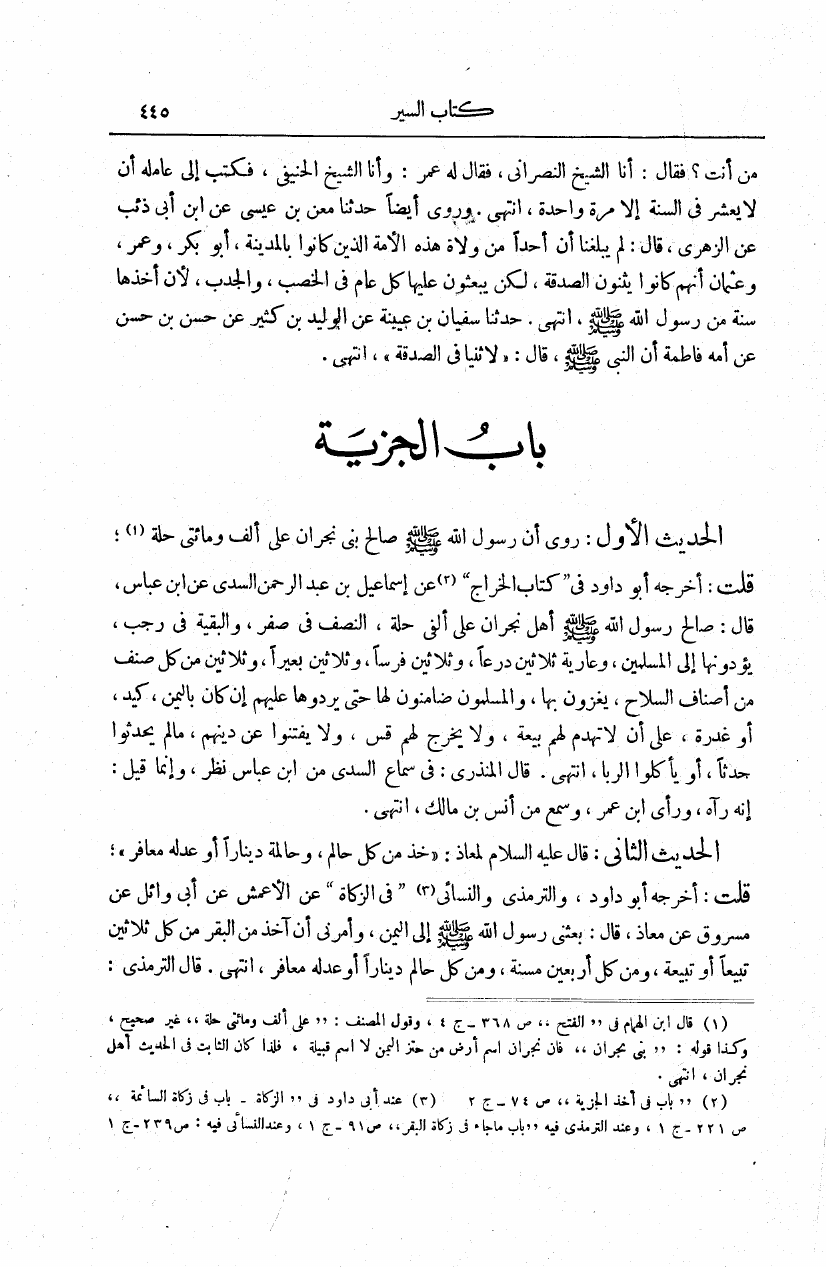 كتاب السير ٤٤٥
من أنت ؟ فقال : أنا الشيخ النصرانى ، فقال له عمر : وأنا الشيخ الحنيفى ، فكتب إلى عامله أن
لا يعشر فى السنة إلا مرة واحدة ، انتهى . وروى أيضاً حدثنا معن بن عيسى عن ابن أبى ذئب
عن الزهرى ، قال : لم يبلغنا أن أحداً من ولاة هذه الأمة الذين كانوا بالمدينة ، أبو بكر ، وعمر ،
وعثمان أنهم كانوا يثنون الصدقة ، لكن يبعثون عليها كل عام فى الخصب ، والجدب ، لأن أخذها
سنة من رسول الله ﷺ ، انتهى . حدثنا سفيان بن عيينة عن الوليد بن كثير عن حسن بن حسن
عن أمه فاطمة أن النبى ﷺ ، قال : « لا ثنيا فى الصدقة » ، انتهى .
بابُ الجزيَة
الحديث الأول : روى أن رسول الله ﷺ صالح بنى نجران على ألف ومائتى حلة (١) ؛
قلت : أخرجه أبو داود فى ”كتاب الخراج“ (٢) عن إسماعيل بن عبد الرحمن السدى عن ابن عباس ،
قال : صالح رسول الله ﷺ أهل نجران على ألفى حلة ، النصف فى صفر ، والبقية فى رجب ،
يؤدونها إلى المسلمين ، وعارية ثلاثين درعاً ، وثلاثين فرساً ، وثلاثين بعيراً ، وثلاثين من كل صنف
من أصناف السلاح ، يغزون بها ، والمسلمون ضامنون لها حتى يردوها عليهم إن كان باليمن ، كيد ،
أو غدرة ، على أن لا تهدم لهم بيعة ، ولا يخرج لهم قس ، ولا يفتنوا عن دينهم ، مالم يحدثوا
حدثاً ، أو يأكلوا الربا ، انتهى . قال المنذرى : فى سماع السدى من ابن عباس نظر ، وإنما قيل :
إنه رآه ، ورأى ابن عمر ، وسمع من أنس بن مالك ، انتهى .
الحديث الثانى : قال عليه السلام لمعاذ : « خذ من كل حالم ، وحالمة ديناراً أو عدله معافر » ؛
قلت : أخرجه أبو داود ، والترمذى والنسائى (٣) ” فى الزكاة “ عن الأعمش عن أبى وائل عن
مسروق عن معاذ ، قال : بعثنى رسول الله ﷺ إلى اليمن ، وأمرنى أن آخذ من البقر من كل ثلاثين
تبيعاً أو تبيعة ، ومن كل أربعين مسنة ، ومن كل حالم ديناراً أو عدله معافر ، انتهى . قال الترمذى :
(١) قال ابن الهمام فى ,, الفتح ،، ص ٣٦٨ - ج ٤ ، وقول المصنف : ,, على ألف ومائتى حلة ،، غير صحيح ،
وكذا قوله : ,, بنى نجران ،، فان نجران اسم أرض من حيّز اليمن لا اسم قبيلة ، فلذا كان الثابت فى الحديث أهل
نجران ، انتهى .
(٢) ,, باب فى أخذ الجزية ،، ص ٧٤ - ج ٢ (٣) عند أبى داود فى ,, الزكاة - باب فى زكاة السائمة ،،
ص ٢٢١ - ج ١ ، وعند الترمذى فيه ,, باب ماجاء فى زكاة البقر ،، ص ٩١ - ج ١ ، وعند النسائى فيه : ص ٢٣٩ - ج ١